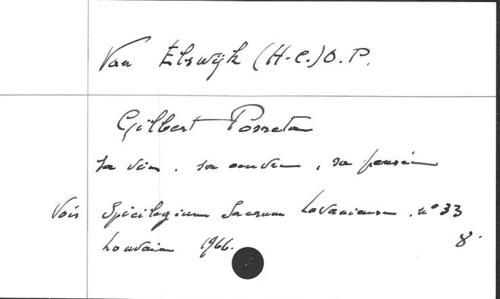 Van Elswijk (H-C.) O.P.
Gilbert Porreta
sa vie, son œuvre, sa pensée
Voir Spicilegium Sacrum Lovaniense, n° 33
Louvain 1966. 8.